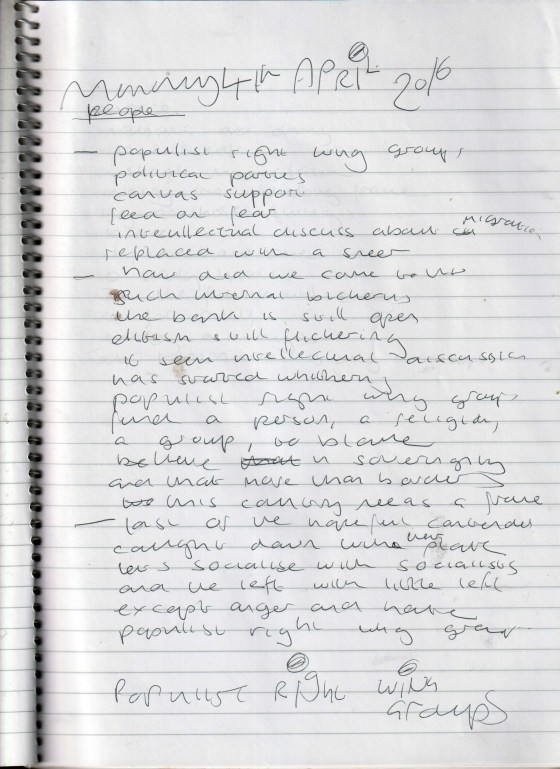 Monday 4th APRIL 2016
people
— populist right wing groups
political parties
canvas support
feed on fear
intellectual discuss about migration
replaced with a sneer
— how did we come to
such internal bickering
the bank is still open
elitism still flickering
it seem intellectual discussion
has started whithering
populist right wing groups
find a person, a religion,
a group, to blame
believe in sovereignty
and that more than border
this country needs a frame
— last of the hopeful contender
caught down
let's socialise with socialists
and the left with little left
except anger and hate
populist right wing group
POPULIST RIGHT WING
GROUPS